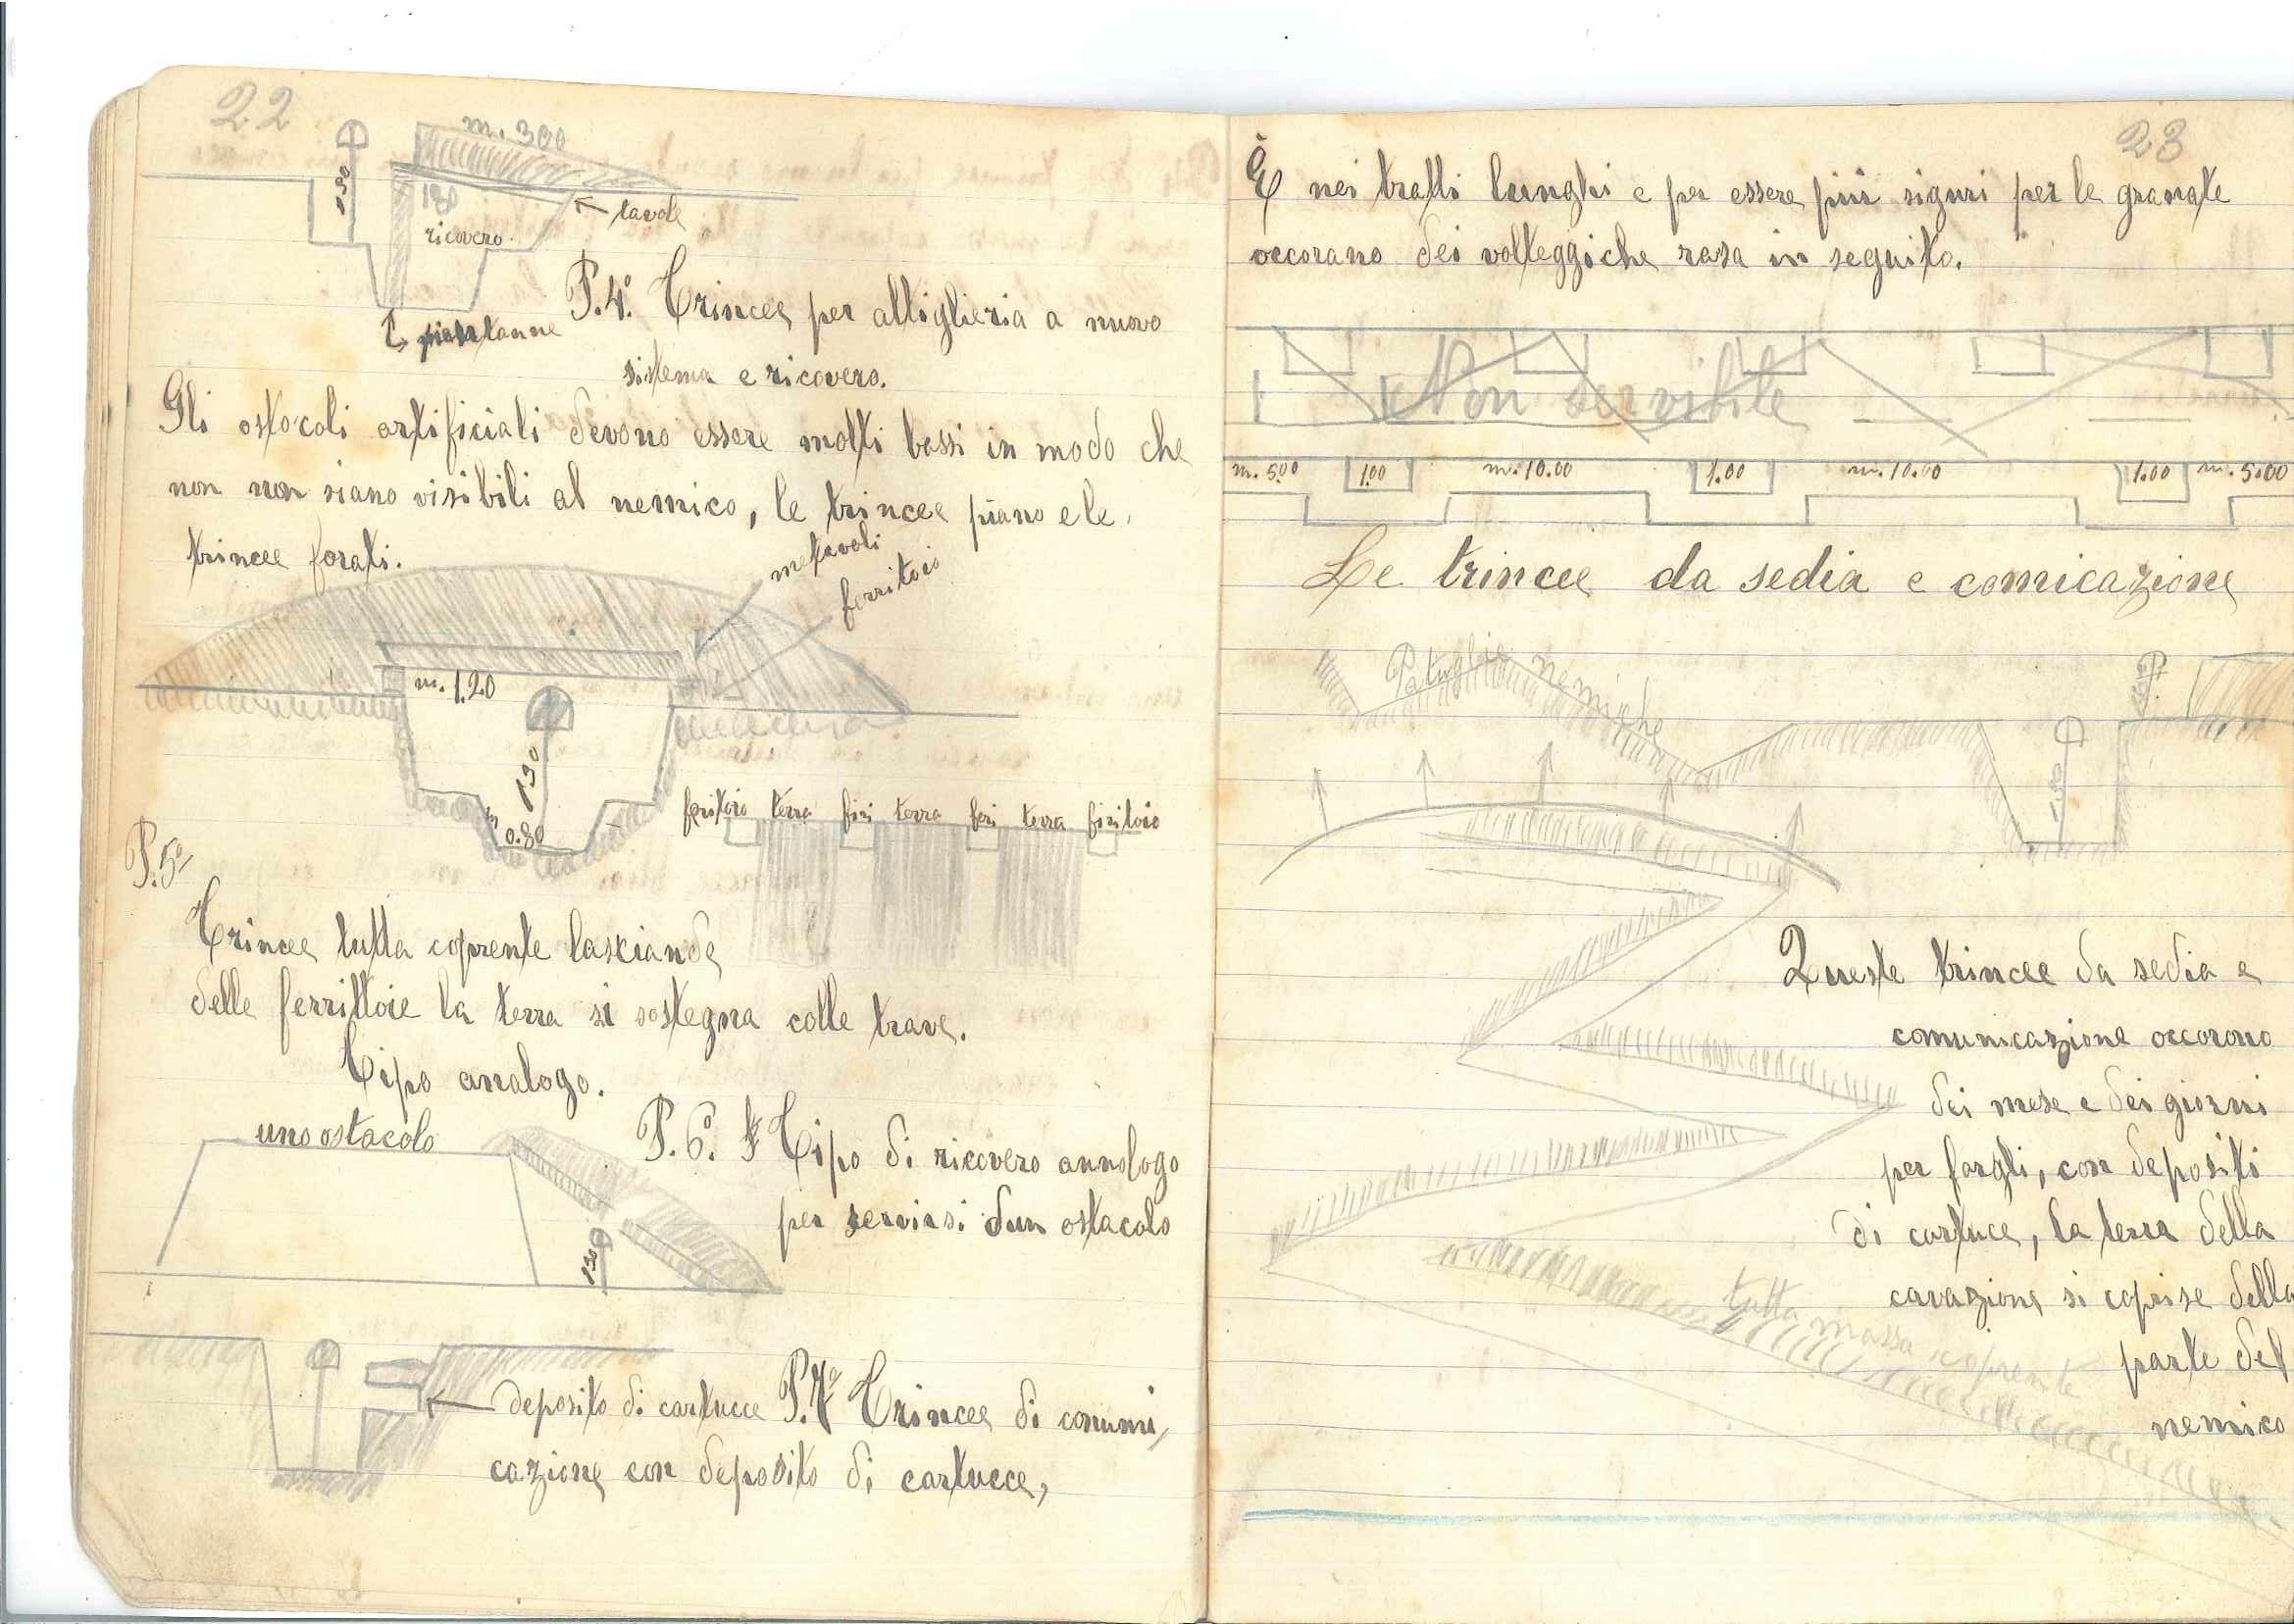 22
m. 300
1.90
180
tavole
ricovero
P. 4° Trincee per alliglieria a nuovo
sistema e ricovero.
Gli ostocoli artificiali devono essere molti bassi in modo che
non non siano visibili al nemico, le trincee piano e le
trincee forati.
metavoli
ferritoio
m. 1.20
1.90
m 0.80
feritoio terra firi terra feri terra firitoio
P. 5°
Trincee tutta coprente lasciande
delle ferrittoie la terra si sostegna colle trave.
Tipo analogo.
uno ostacolo
P. 6°. Tipo di ricovero annologo
per servirsi dun ostacolo
1.90
deposito di cartucce P. 7° Trincee di comuni/
cazione con deposito di cartucce,
23
È nei tratti lunghi e per essere più siguri per le granate
occorano dei volteggi che rasa in seguito.
Non servibile
m. 5.00 1.00 m. 10.00 1.00 m. 10.00 1.00 m. 5.00
Le trincee da sedia e comicazione
Patuglie nemiche
Queste trincee da sedia e
comunicazione occorono
dei mese e dei giorni
per fargli, con depositi
di cartuce, la terra della
cavazione si coprise della
parte del
nemico
tutta massa coprente